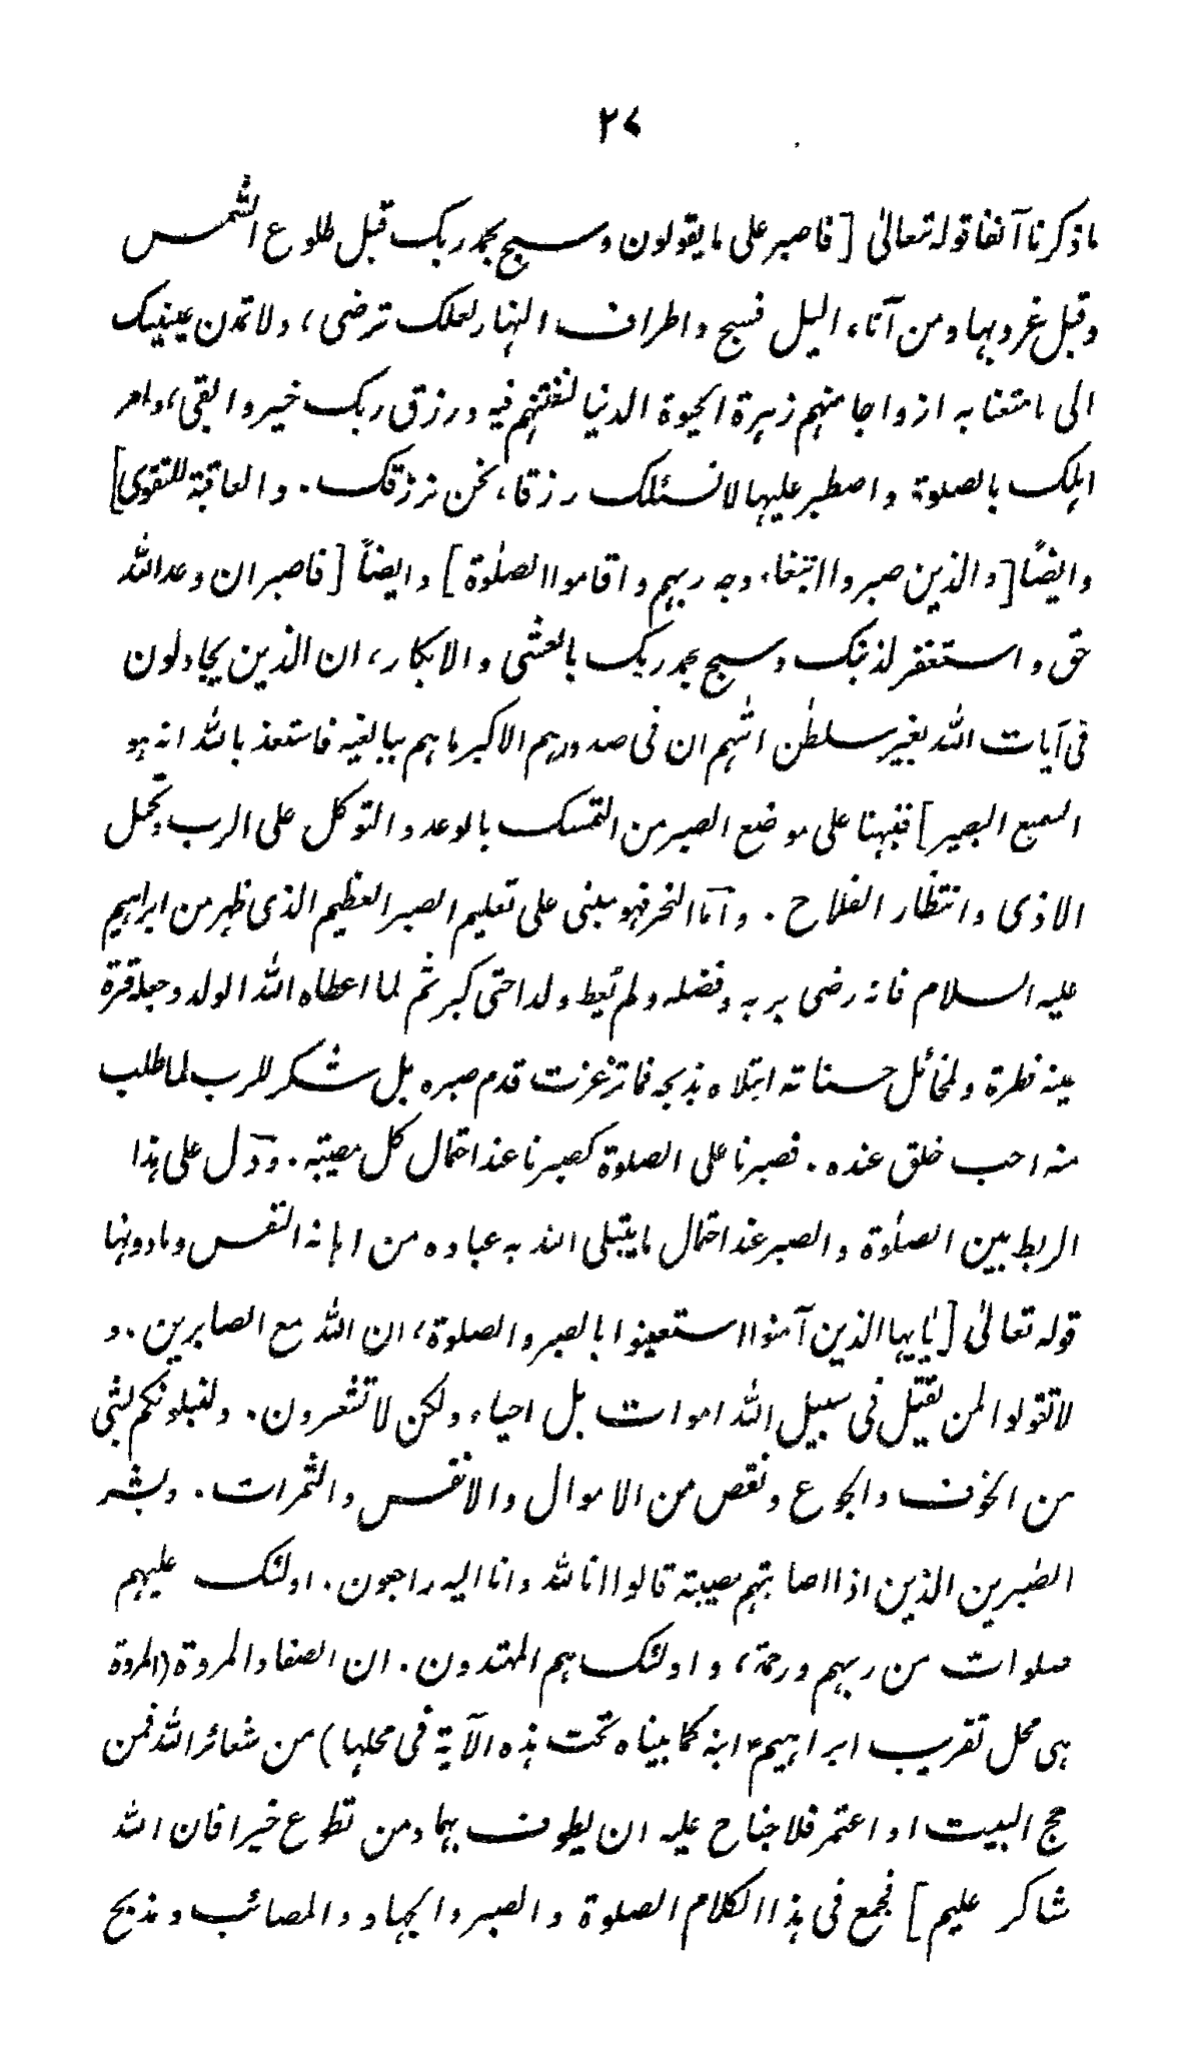 ۲۷
ما ذكرنا آنفا قوله تعالىٰ [فاصبر على ما يقولون وسبح بحمد ربك قبل طلوع الشمس
وقبل غروبها ومن آناء اليل فسبح واطراف النهار لعلك ترضى، ولا تمدن عينيك
الى ما متعنا به ازواجا منهم زهرة الحيوة الدنيا لنفتنهم فيه ورزق ربك خير وابقى، وامر
اهلك بالصلوة واصطبر عليها لا نسئلك رزقا، نحن نرزقك. والعاقبة للتقوى]
وايضًا [والذين صبروا ابتغاء وجه ربهم واقاموا الصلٰوة] وايضاً [فاصبر ان وعد الله
حق واستغفر لذنبك وسبح بحمد ربك بالعشى والابكار، ان الذين يجادلون
فى آيات الله بغير سلطٰن اتٰهم ان فى صدورهم الا كبر ما هم ببالغيه فاستعذ بالله انه هو
السميع البصير] فنبهنا على موضع الصبر من التمسك بالوعد والتوكل على الرب وتحمل
الاذى وانتظار الفلاح. وامّا النحر فهو مبنى على تعليم الصبر العظيم الذى ظهر من ابراهيم
عليه السلام فانه رضى بربه وفضله ولم يُعط ولدا حتى كبر ثم لما اعطاه الله الولد وجعله قرة
عينه فطرة ولمخائل حسناته ابتلاه بذبحه فما تزعزعت قدم صبره بل شكر للرب لما طلب
منه احب خلق عنده. فصبرنا على الصلوة كصبرنا عند احتمال كل مصيبة. ودّل على هذا
الربط بين الصلٰوة والصبر عند احتمال ما يبتلى الله به عباده من اهانة النفس وما دونها
قوله تعالىٰ [يٰايها الذين آمنوا استعينوا بالصبر والصلوة، ان الله مع الصابرين. و
لا تقولوا لمن يقتل فى سبيل الله اموات بل احياء ولكن لا تشعرون. ولنبلونكم بشئ
من الخوف والجوع ونقص من الاموال والانفس والثمرات. وبشر
الصٰبرين الذين اذا اصابتهم مصيبة قالوا انا لله وانا اليه راجعون. اولئك عليهم
صلوات من ربهم ورحمة، واولئك هم المهتدون. ان الصفا والمروة (المروة
هى محل تقريب ابراهيمؑ ابنه كما بيناه تحت هذه الآية فى محلها) من شعائر الله فمن
حج البيت او اعتمر فلا جناح عليه ان يطوف بهما ومن تطوع خيرا فان الله
شاكر عليم] فجمع فى هذا الكلام الصلوة والصبر والجهاد والمصائب ومذبح